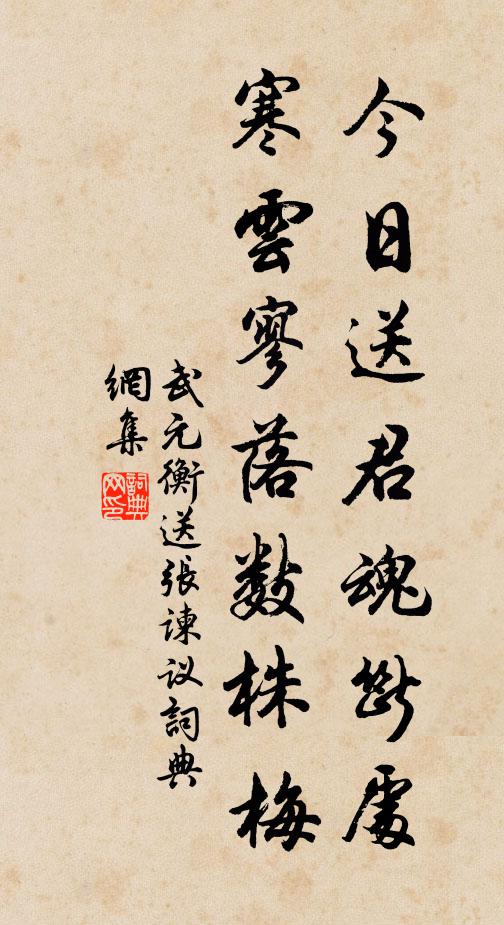 今日送君魂斷處
寒雲寥落數株梅
武元衡送張諫议詞典
網集
詞典
网印